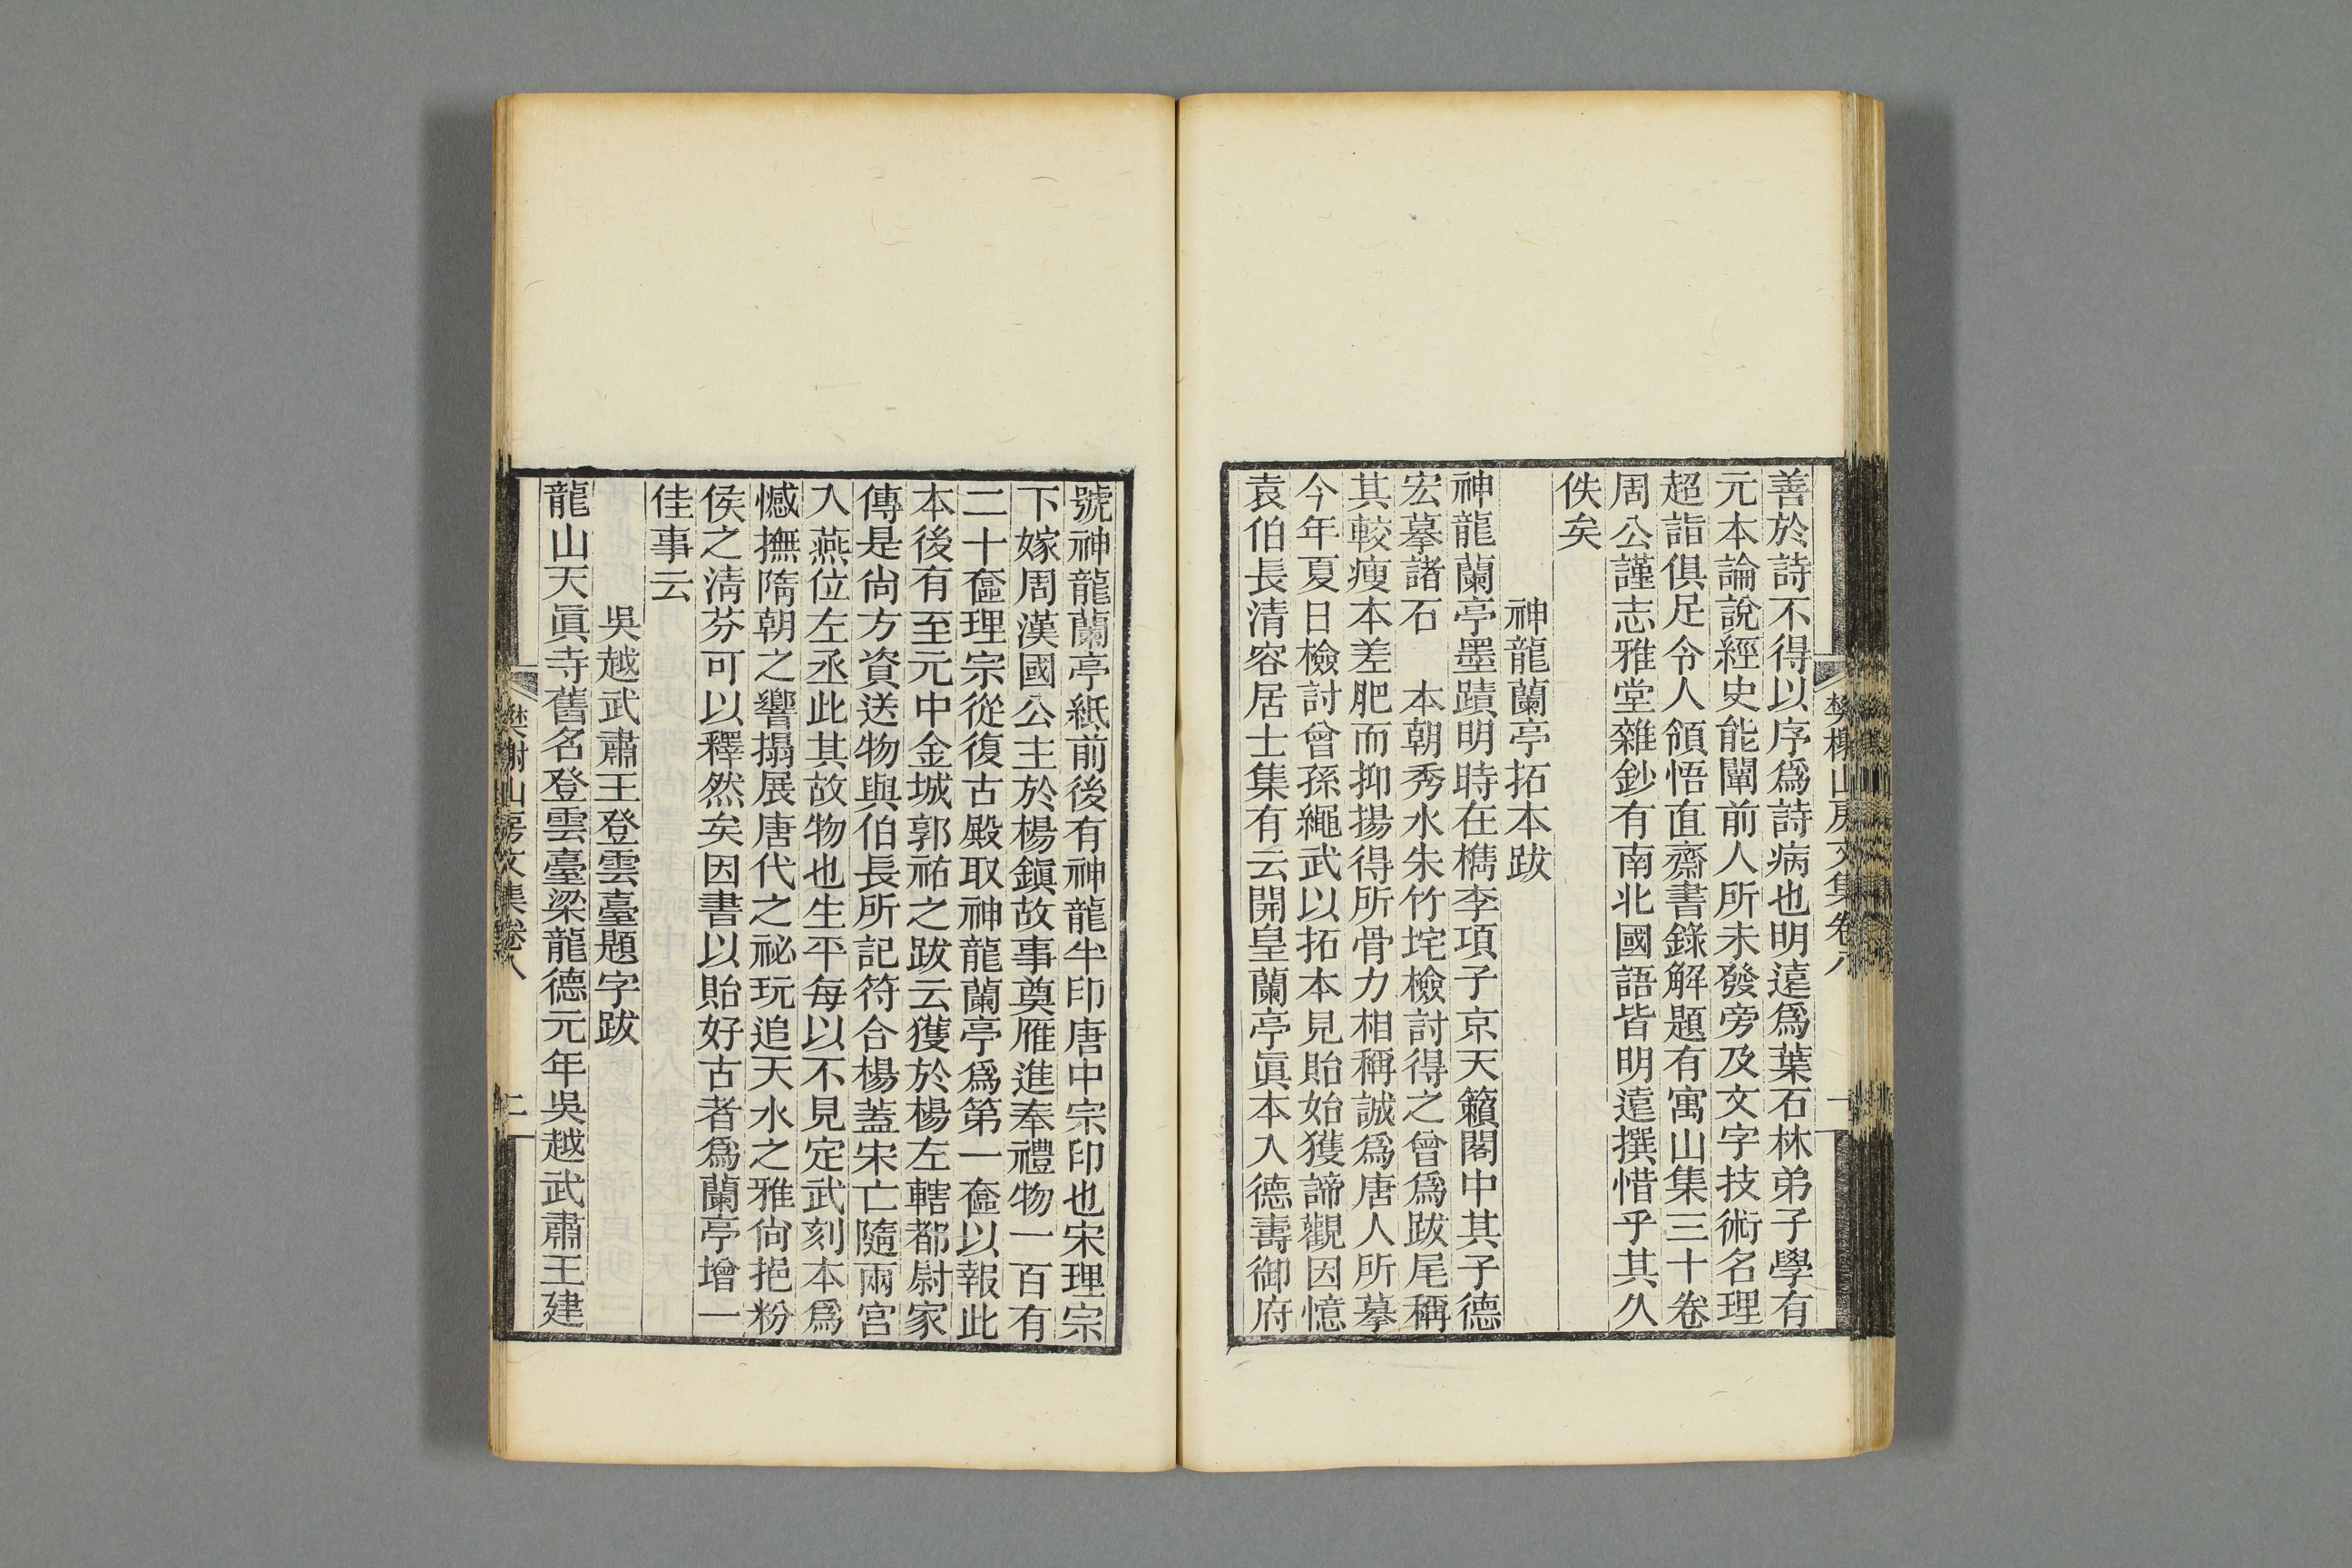 善於詩不得以序爲詩病也明遠爲葉石林弟子學有
元本論說經史能闡前人所未發旁及文字技術名理
超詣俱足令人領悟直齋書錄解題有寓山集三十卷
周公謹志雅堂雜鈔有南北國語皆明遠撰惜乎其久
佚矣
神龍蘭亭拓本跋
神龍蘭亭墨蹟明時在檇李項子京天籟閣中其子德
宏摹諸石　本朝秀水朱竹垞檢討得之曾爲跋尾稱
其較瘦本差肥而抑揚得所骨力相稱誠爲唐人所摹
今年夏日檢討曾孫繩武以拓本見貽始獲諦觀因憶
袁伯長清容居士集有云開皇蘭亭眞本入德壽御府
樊榭山房文集卷八
一
號神龍蘭亭紙前後有神龍半印唐中宗印也宋理宗
下嫁周漢國公主於楊鎭故事奠雁進奉禮物一百有
二十奩理宗從復古殿取神龍蘭亭爲第一奩以報此
本後有至元中金城郭祐之跋云獲於楊左轄都尉家
傳是尙方資送物與伯長所記符合楊蓋宋亡隨兩宮
入燕位左丞此其故物也生平每以不見定武刻本爲
憾撫隋朝之響搨展唐代之祕玩追天水之雅尙挹粉
侯之淸芬可以釋然矣因書以貽好古者爲蘭亭增一
佳事云
吳越武肅王登雲臺題字跋
龍山天眞寺舊名登雲臺梁龍德元年吳越武肅王建
樊榭山房文集卷八
二